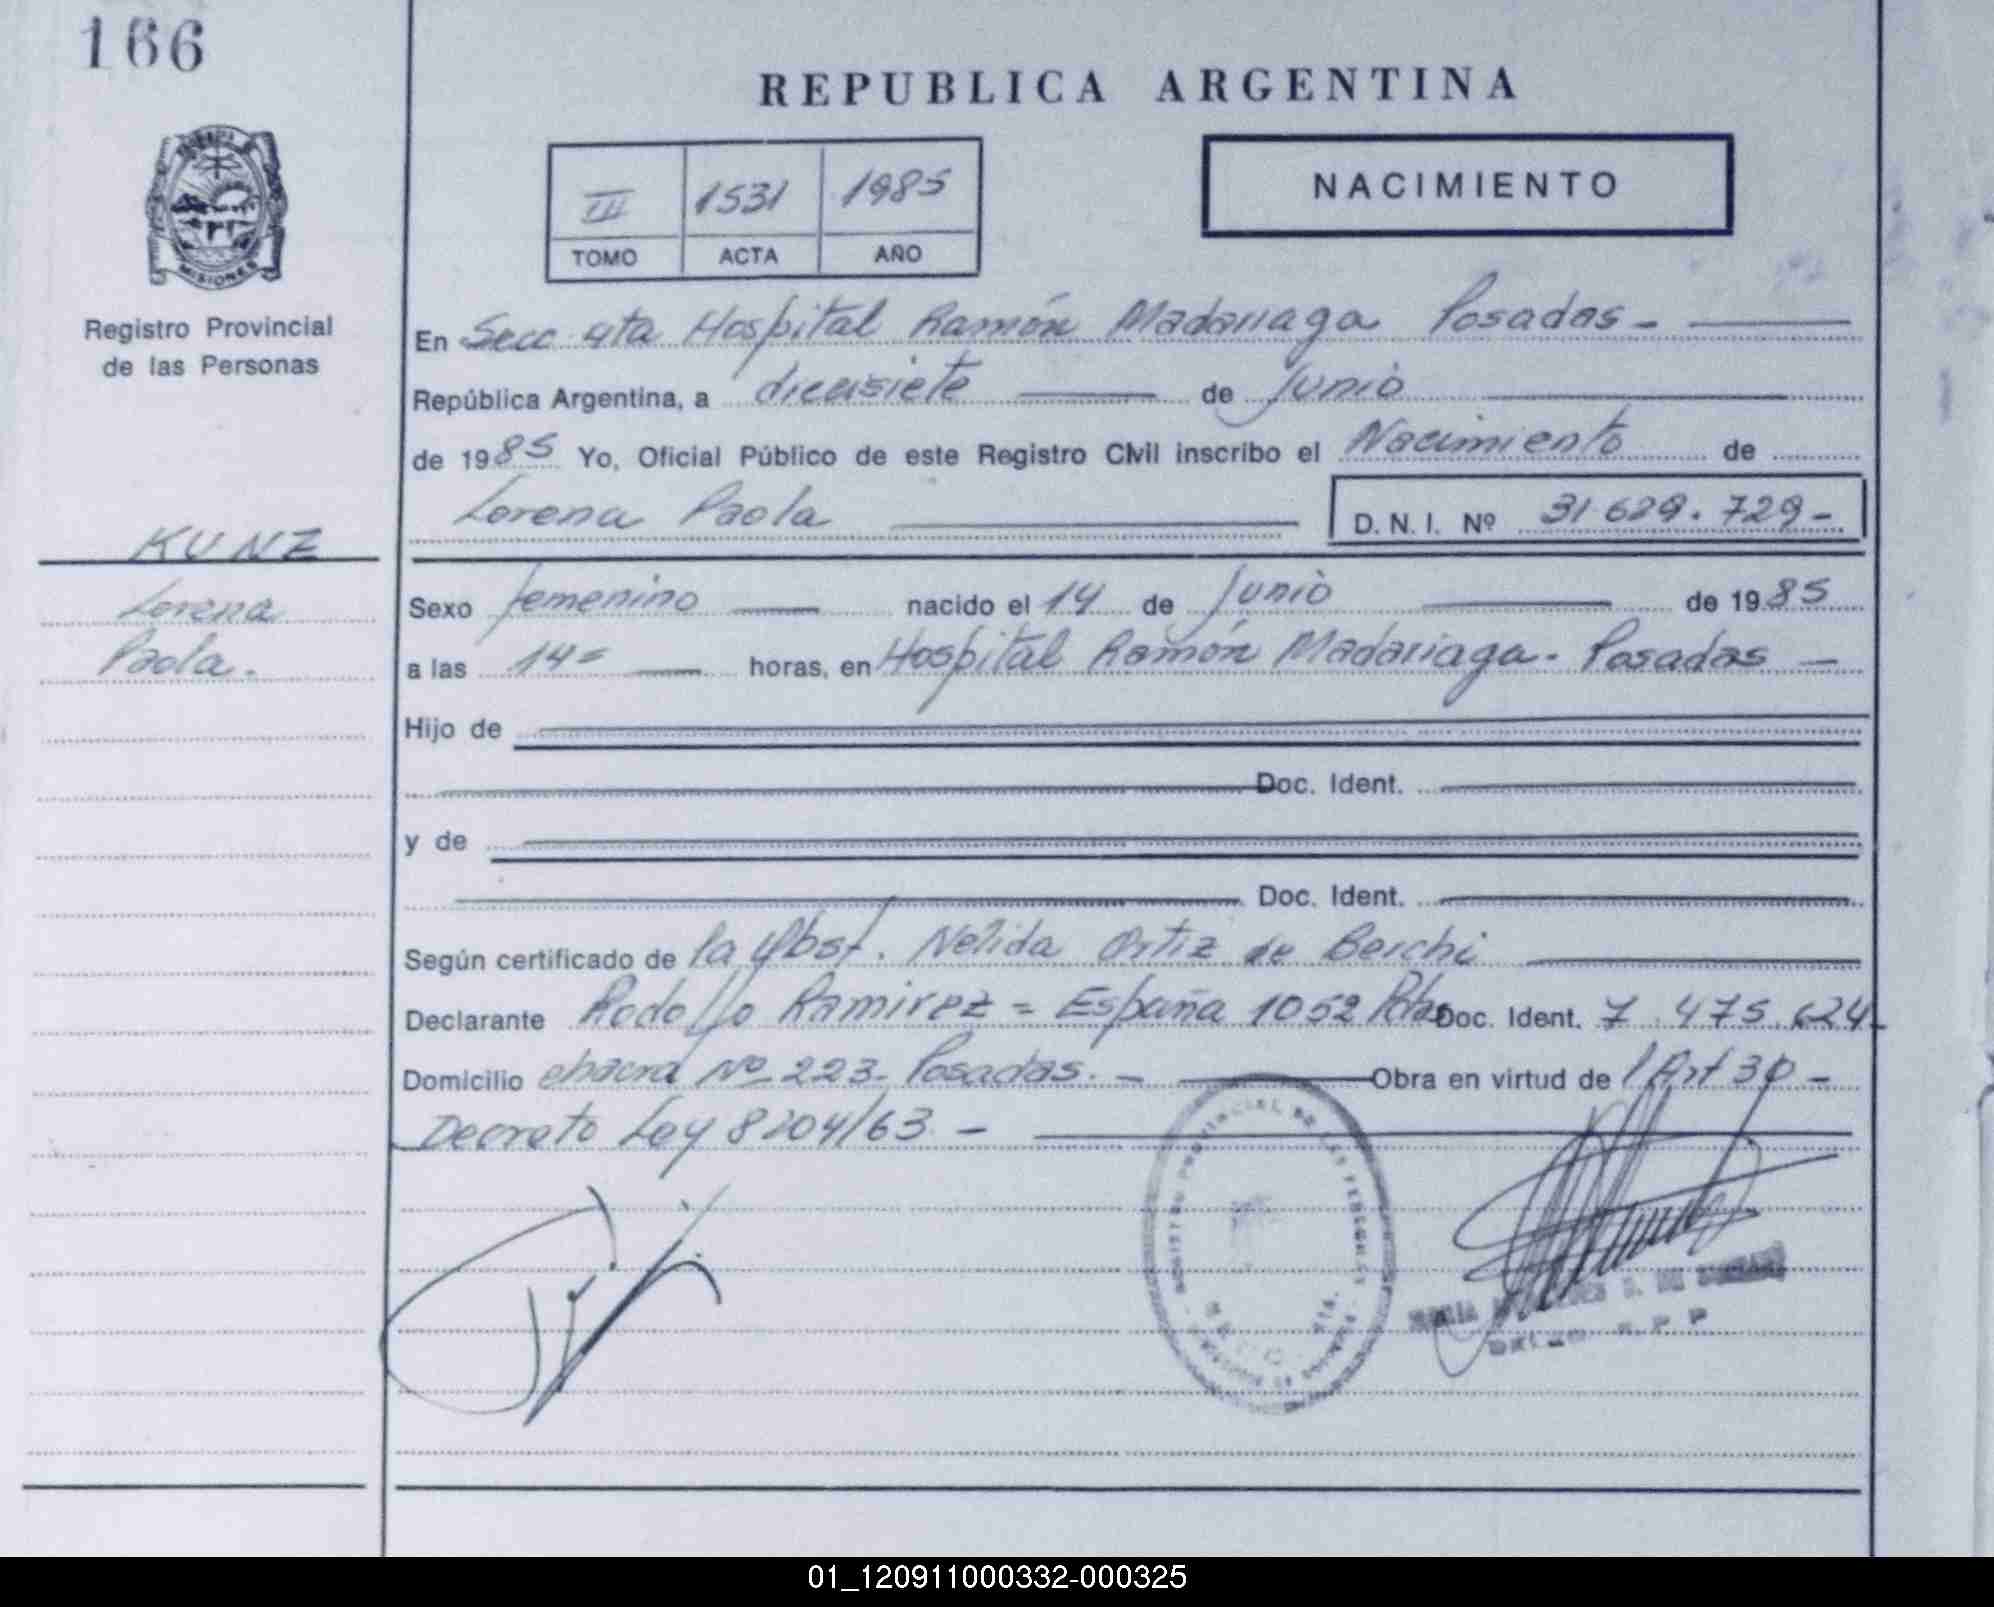 166
REPUBLICA ARGENTINA
MISIONES
Registro Provincial
de las Personas
III 1531 1985
TOMO ACTA AÑO
NACIMIENTO
En Secc 4ta Hospital Ramón Madariaga Posadas -
República Argentina, a diecisiete de Junio
de 1985 Yo, Oficial Público de este Registro Civil inscribo el Nacimiento de
Lorena Paola D. N. I. Nº 31 629.729-
KUNZ
Lorena
Paola.
Sexo femenino nacido el 14 de Junio de 1985
a las 14= horas, en Hospital Ramón Madariaga - Posadas -
Hijo de
Doc. Ident.
y de
Doc. Ident.
Según certificado de la Obst. Nelida Ortiz de Berchi
Declarante Rodolfo Ramirez = España 1052 Pdas Doc. Ident. 7.475.624-
Domicilio chacra Nº 223- Posadas. - Obra en virtud del Art 30 -
Decreto Ley 8204/63 -
01_120911000332-000325